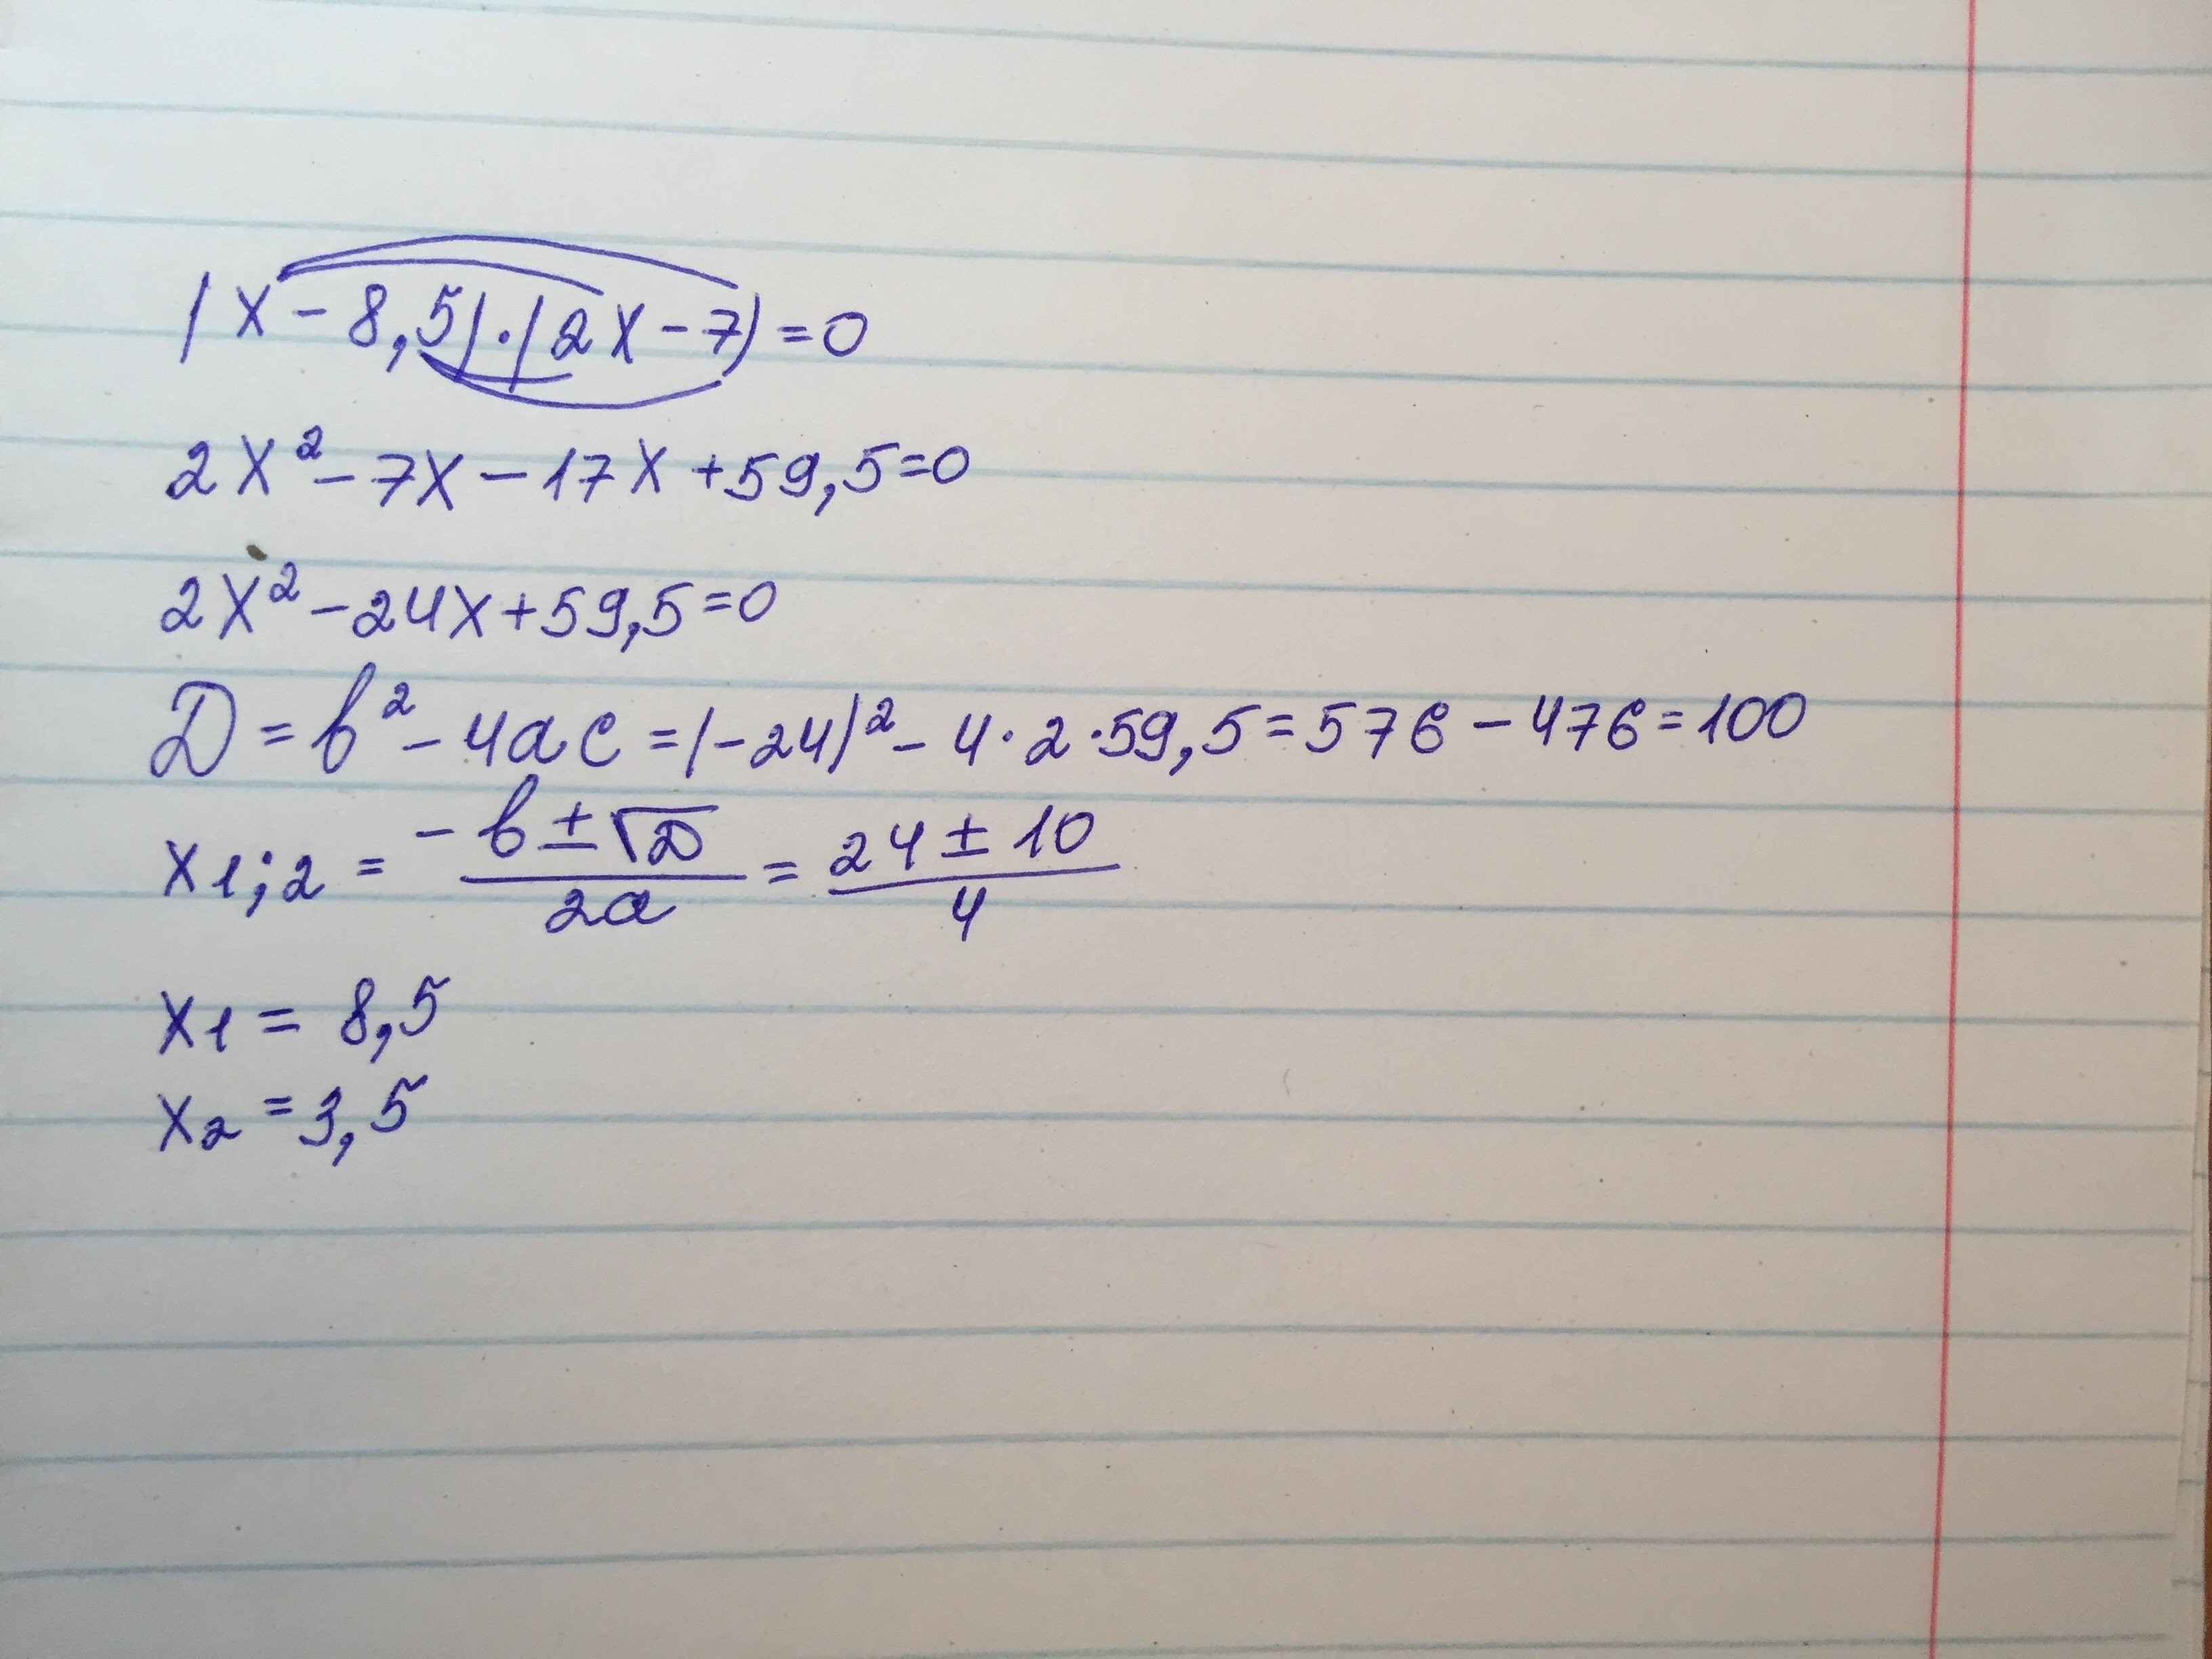 (x - 8,5) · (2x - 7) = 0
2x² - 7x - 17x + 59,5 = 0
2x² - 24x + 59,5 = 0
D = b² - 4ac = (-24)² - 4 · 2 · 59,5 = 576 - 476 = 100
x1;2 = (-b ± √D)/(2a) = (24 ± 10)/4
x1 = 8,5
x2 = 3,5